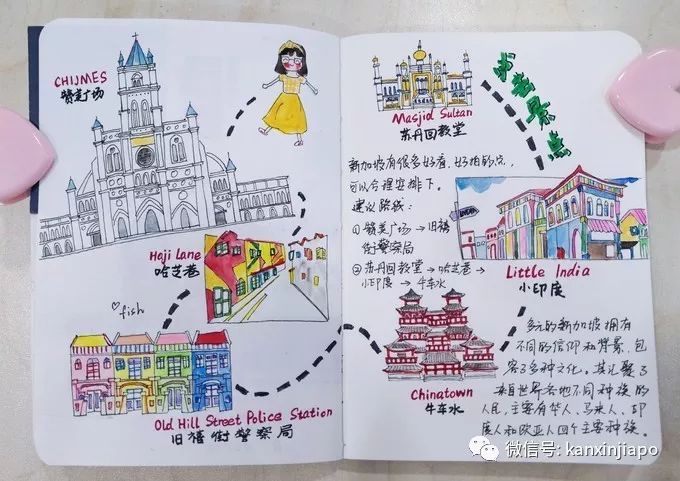 CHIJMES
赞美广场
Haji Lane
哈芝巷
fish
Old Hill Street Police Station
旧禧街警察局
Masjid Sultan
苏丹回教堂
景点
新加坡有很多好看，好拍的点，
可以合理安排下。
建议路线：
①赞美广场→旧禧
街警察局
②苏丹回教堂→哈芝巷→
小印度→牛车水
INDIA
Little India
小印度
Chinatown
牛车水
多元的新加坡拥有
不同的信仰和背景，包
容了多种文化。其汇聚了
来自世界各地不同种族的
人民，主要有华人、马来人、印
度人和欧亚人四个主要种族。
微信号: kanxinjiapo